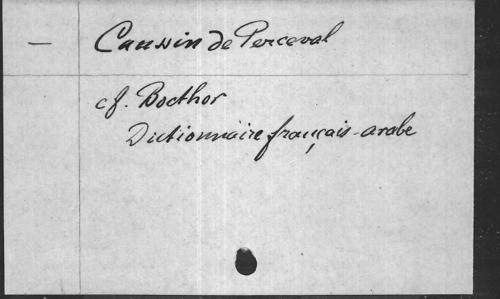 — Caussin de Perceval
cf. Bocthor
Dictionnaire français-arabe